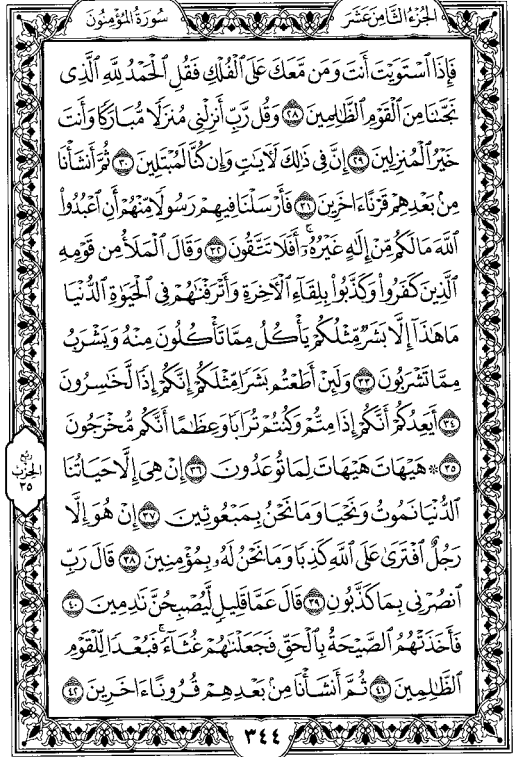 الجزء الثامن عشر
سورة المؤمنون
فَإِذَا ٱسْتَوَيْتَ أَنتَ وَمَن مَّعَكَ عَلَى ٱلْفُلْكِ فَقُلِ ٱلْحَمْدُ لِلَّهِ ٱلَّذِى
نَجَّىٰنَا مِنَ ٱلْقَوْمِ ٱلظَّٰلِمِينَ ٢٨ وَقُل رَّبِّ أَنزِلْنِى مُنزَلًا مُّبَارَكًا وَأَنتَ
خَيْرُ ٱلْمُنزِلِينَ ٢٩ إِنَّ فِى ذَٰلِكَ لَءَايَٰتٍ وَإِن كُنَّا لَمُبْتَلِينَ ٣٠ ثُمَّ أَنشَأْنَا
مِنۢ بَعْدِهِمْ قَرْنًا ءَاخَرِينَ ٣١ فَأَرْسَلْنَا فِيهِمْ رَسُولًا مِّنْهُمْ أَنِ ٱعْبُدُوا۟
ٱللَّهَ مَا لَكُم مِّنْ إِلَٰهٍ غَيْرُهُۥٓ ۚ أَفَلَا تَتَّقُونَ ٣٢ وَقَالَ ٱلْمَلَأُ مِن قَوْمِهِ
ٱلَّذِينَ كَفَرُوا۟ وَكَذَّبُوا۟ بِلِقَآءِ ٱلْءَاخِرَةِ وَأَتْرَفْنَٰهُمْ فِى ٱلْحَيَوٰةِ ٱلدُّنْيَا
مَا هَٰذَآ إِلَّا بَشَرٌ مِّثْلُكُمْ يَأْكُلُ مِمَّا تَأْكُلُونَ مِنْهُ وَيَشْرَبُ
مِمَّا تَشْرَبُونَ ٣٣ وَلَئِنْ أَطَعْتُم بَشَرًا مِّثْلَكُمْ إِنَّكُمْ إِذًا لَّخَٰسِرُونَ
٣٤ أَيَعِدُكُمْ أَنَّكُمْ إِذَا مِتُّمْ وَكُنتُمْ تُرَابًا وَعِظَٰمًا أَنَّكُم مُّخْرَجُونَ
٣٥ ۞ هَيْهَاتَ هَيْهَاتَ لِمَا تُوعَدُونَ ٣٦ إِنْ هِىَ إِلَّا حَيَاتُنَا
ٱلدُّنْيَا نَمُوتُ وَنَحْيَا وَمَا نَحْنُ بِمَبْعُوثِينَ ٣٧ إِنْ هُوَ إِلَّا
رَجُلٌ ٱفْتَرَىٰ عَلَى ٱللَّهِ كَذِبًا وَمَا نَحْنُ لَهُۥ بِمُؤْمِنِينَ ٣٨ قَالَ رَبِّ
ٱنصُرْنِى بِمَا كَذَّبُونِ ٣٩ قَالَ عَمَّا قَلِيلٍ لَّيُصْبِحُنَّ نَٰدِمِينَ ٤٠
فَأَخَذَتْهُمُ ٱلصَّيْحَةُ بِٱلْحَقِّ فَجَعَلْنَٰهُمْ غُثَآءً ۚ فَبُعْدًا لِّلْقَوْمِ
ٱلظَّٰلِمِينَ ٤١ ثُمَّ أَنشَأْنَا مِنۢ بَعْدِهِمْ قُرُونًا ءَاخَرِينَ ٤٢
ربع
الحزب
٣٥
٣٤٤